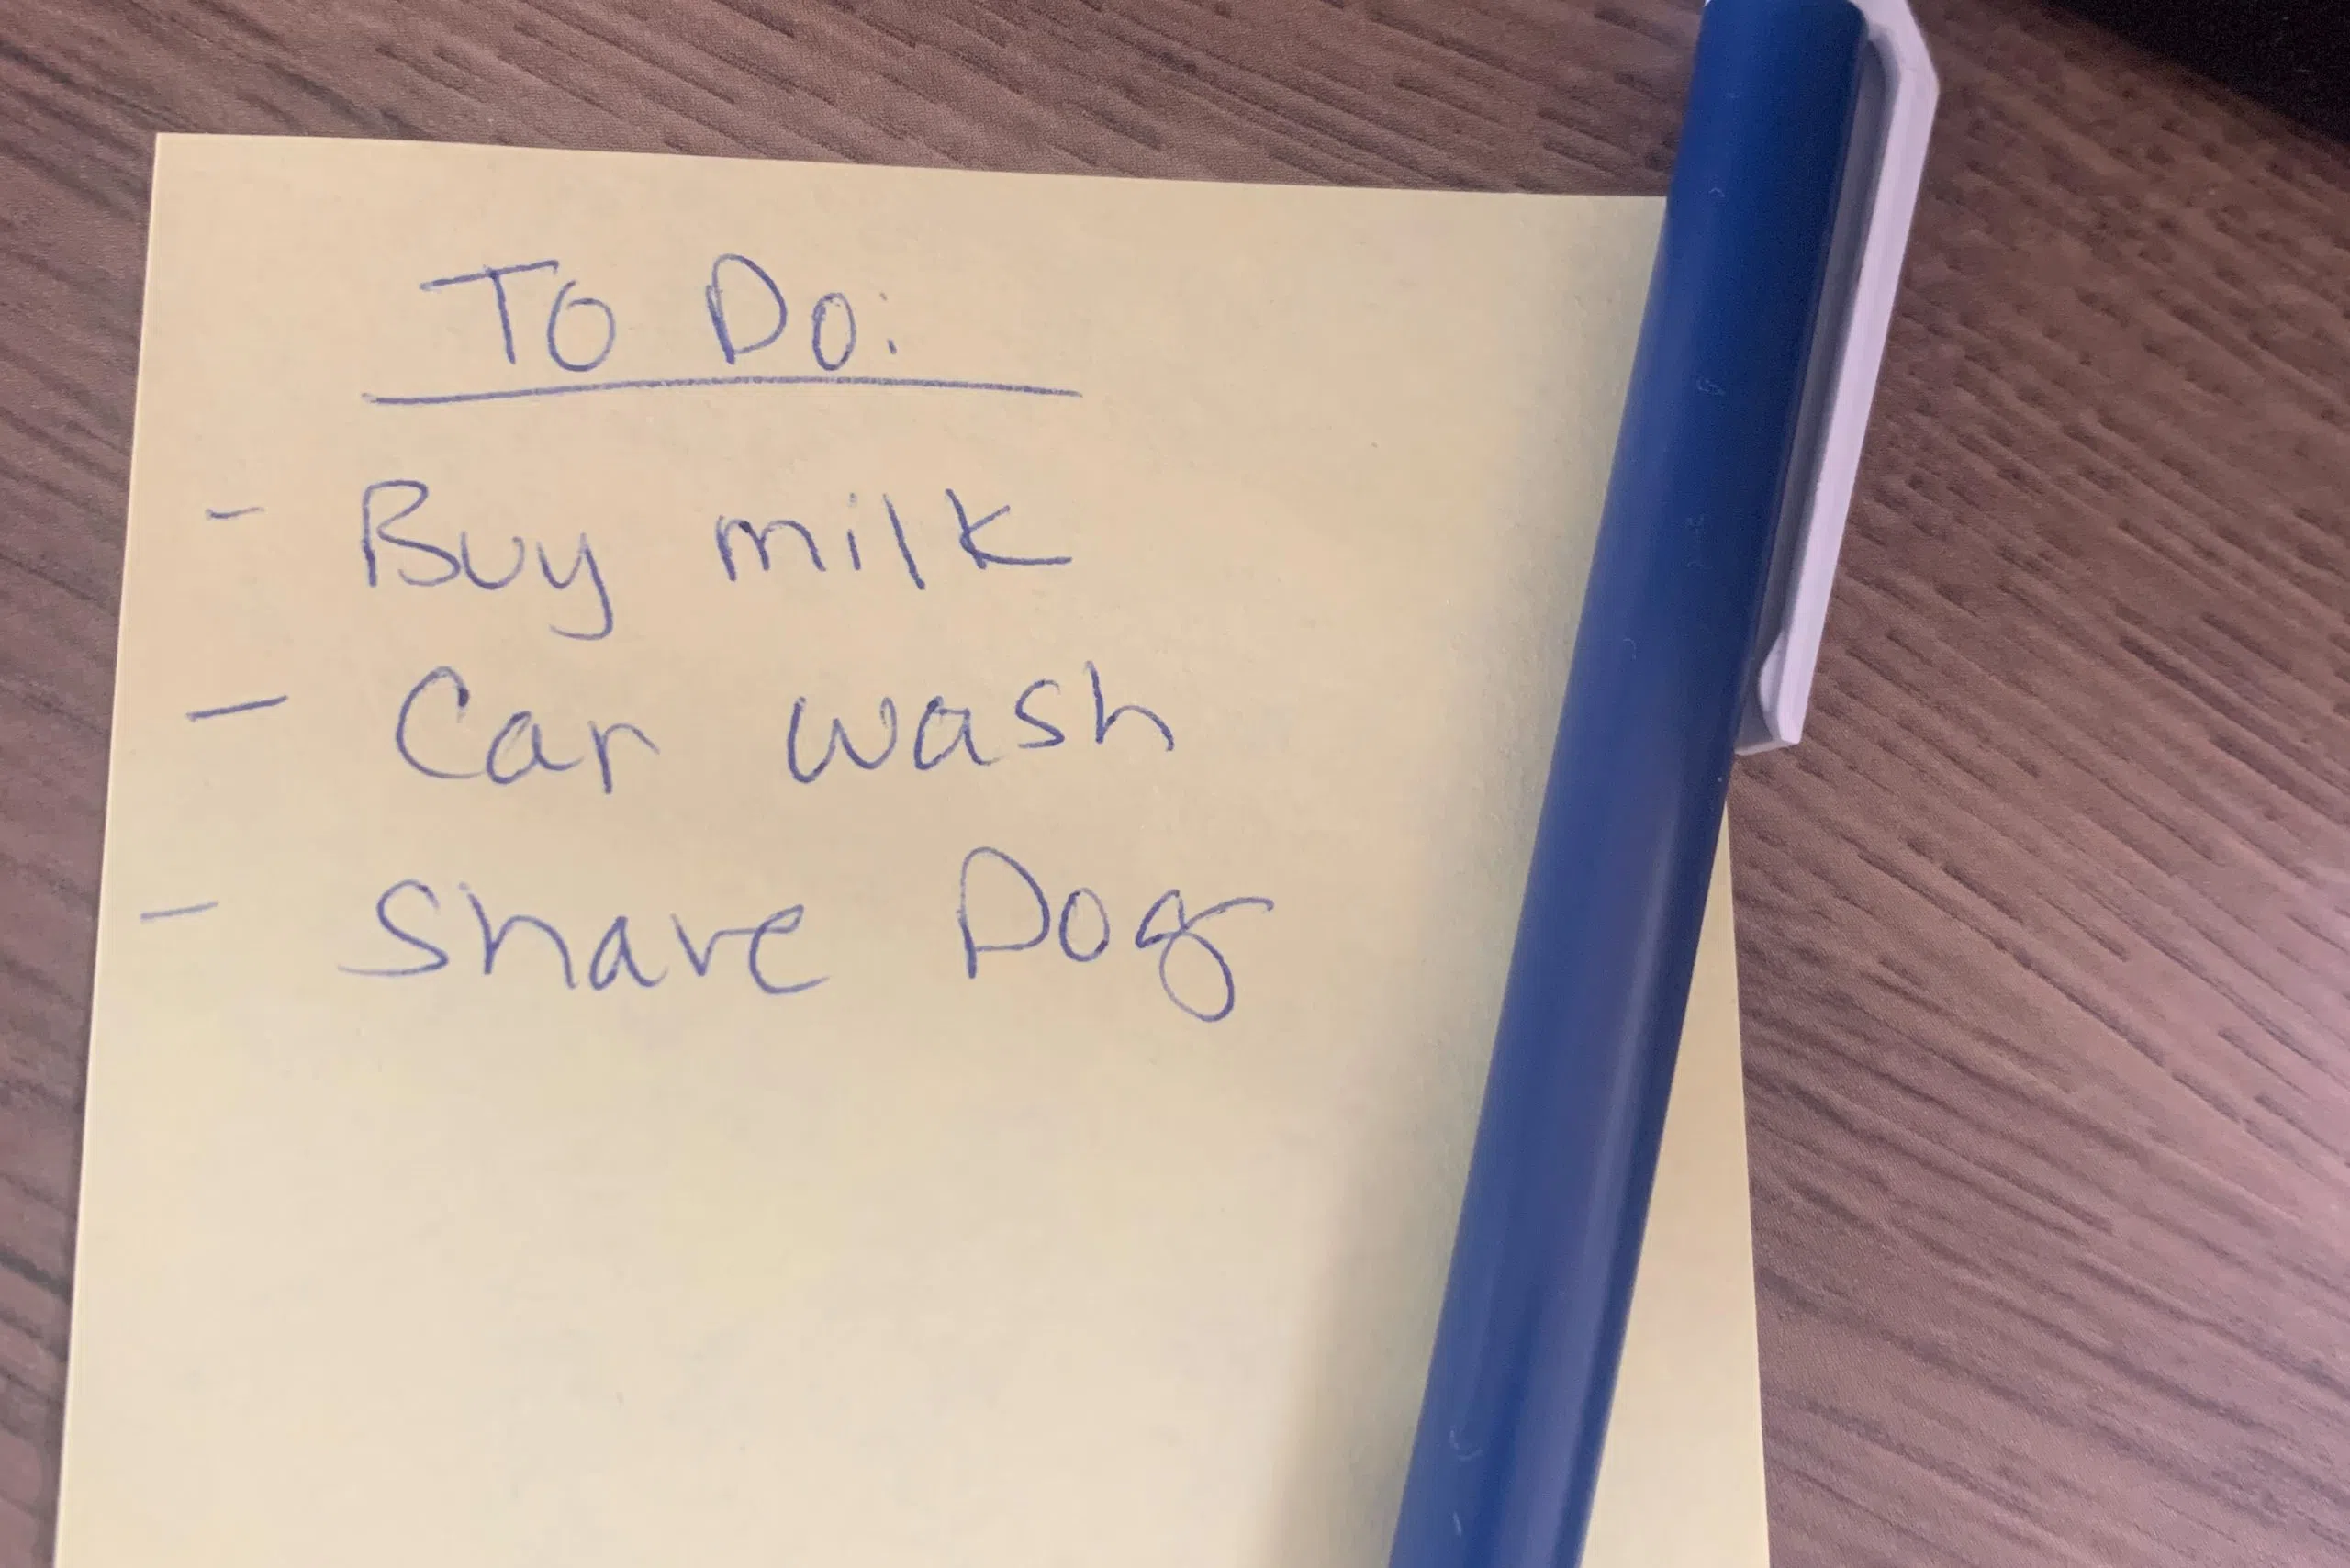 To Do:
- Buy milk
- Car wash
- Shave Dog